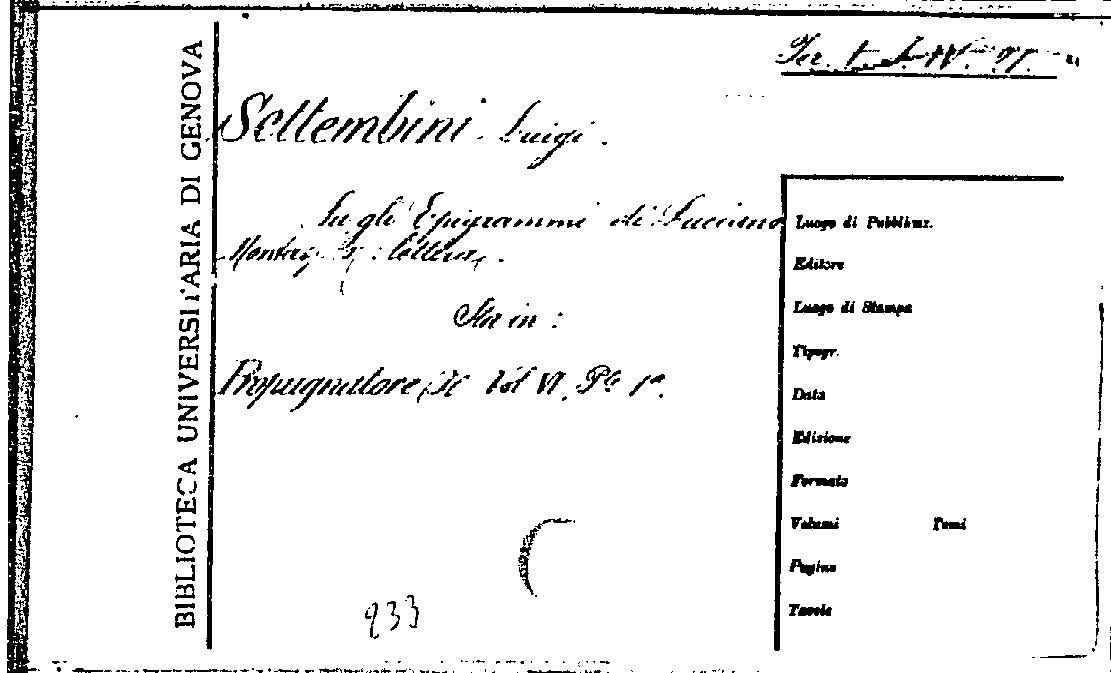 BIBLIOTECA UNIVERSITARIA DI GENOVA
Settembini Luigi.
Su gli Epigrammi di Luciano
lettera.
Sta in:
Propugnatore, Il Vol VI. Pte 1a.
933
Luogo di Pubblicaz.
Editore
Luogo di Stampa
Tipogr.
Data
Edizione
Formato
Volumi Tomi
Pagine
Tavole